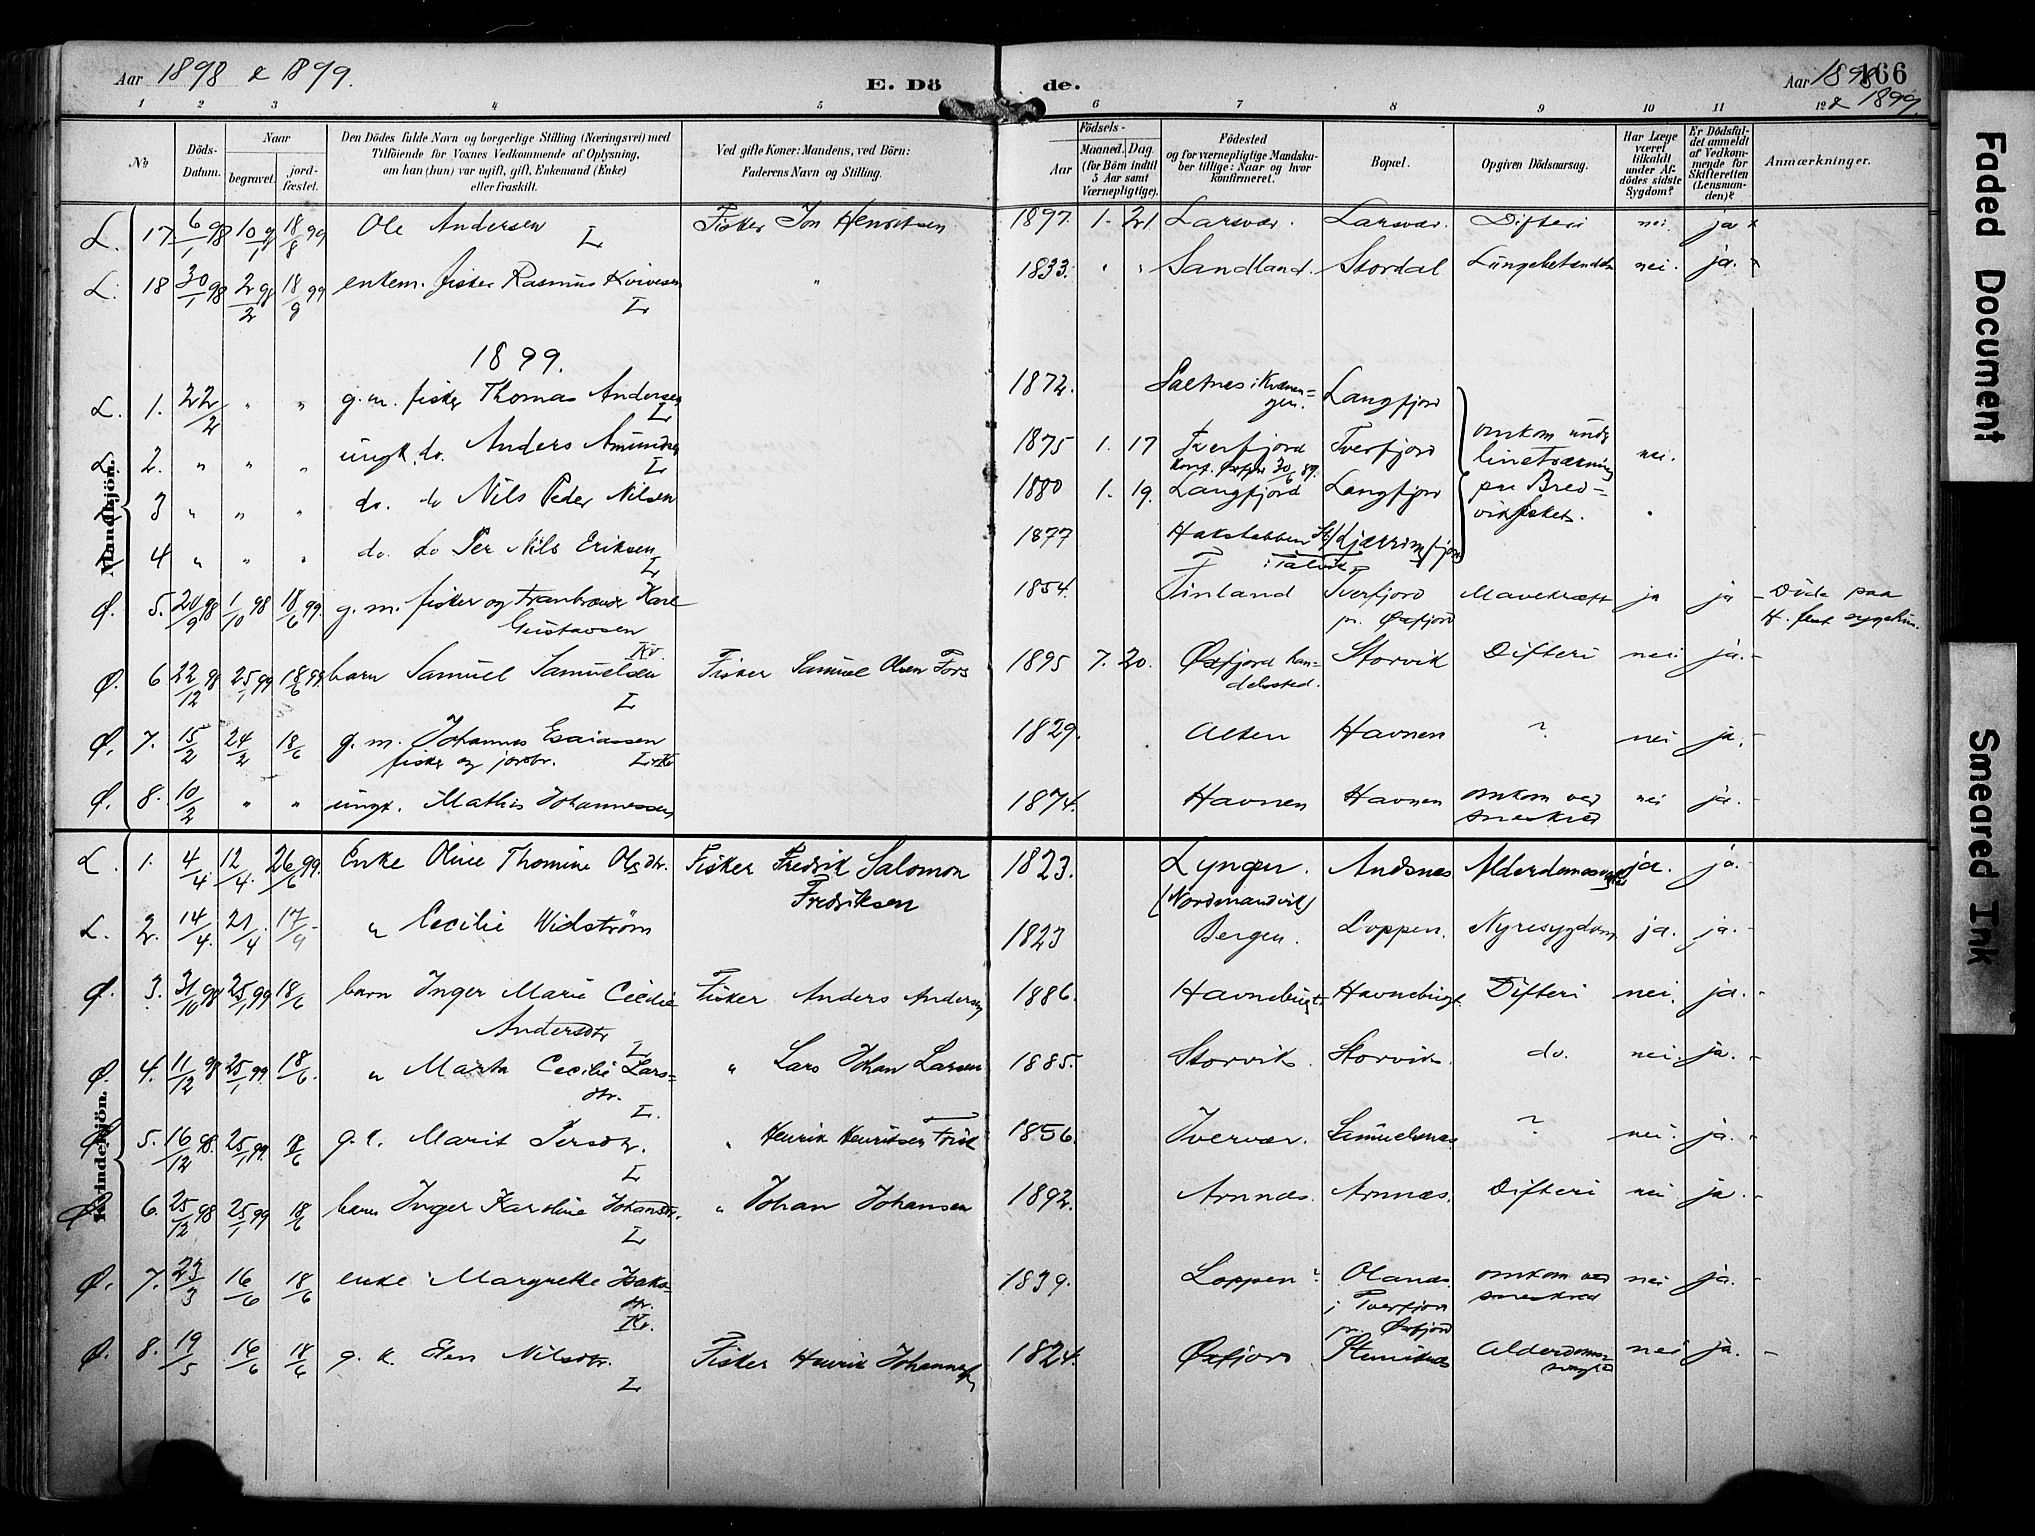 Aar 1898 & 1899. E. Dö de. Aar 1898 & 1899. 166
1 2 3 4 5 6 7 8 9 10 11 12
No Döds-Datum. Naar begravet. jordfæstet. Den Dödes fulde Navn og borgerlige Stilling (Næringsvei) med Tilföiende for Voxnes Vedkommende af Oplysning, om han (hun) var ugift, gift, Enkemand (Enke) eller fraskilt. Ved gifte Koner: Mandens, ved Börn: Faderens Navn og Stilling. Födsels- Aar Maaned. Dag (for Börn indtil 5 Aar samt Værnepligtige). Födested og for værnepligtige Mandskaber tillige: Naar og hvor konfirmeret. Bopæl. Opgiven Dödsaarsag. Har Læge været tilkaldt under Afdödes sidste Sygdom? Er Dödsfaldet anmeldt af Vedkommende for Skifteretten (Lensmanden)? Anmærkninger.
Mandkjön.
L. 17 6/1 98 10/1 98 18/8 99 Ole Andersen L Fisker Jon Henriksen 1897. 1. 21 Larsvær. Larsvær. Difteri nei. ja
L. 18 30/1 98 2/2 98 18/9 99 enkem. fisker Rasmus L " 1833. " " Sandland. Stordal nei. ja.
1899.
L. 1. 22/2 " " g. m. fisker Thomas Andersen L 1872. Saltnes i Kvænangen. Langfjord
L 2. " " " ungk. do. Anders Amundsen L 1875 1. 17 Tverfjord Tverfjord omkom under linetrækning nei.
3 " " " do. do Nils Peder Nilsen 1880 1. 19. Langfjord Langfjord paa Bredvikfisket.
4 " " " do. do Per Nils Eriksen L 1877 Hakstabben i Talvik
Ø. 5. 20/9 98 1/10 98 18/6 99. g. m. fisker og tranbrænder Karl Gustavsen Kv. 1854. Finland Tverfjord pr. Øxfjord Mavekræft ja ja Döde paa H. fest sygehus.
Ø. 6 22/12 98 25/1 99 18/6 99 barn Samuel Samuelsen L Fisker Samuel Olsen Fors 1895 7. 20. Øxfjord handelssted. Storvik Difteri nei ja.
Ø. 7. 15/2 24/2 18/6 g. m. Johannes Esaiassen fisker og jordbr. L. Kv 1829. Alten Havnen ? nei ja.
Ø. 8. 10/2 " " ungk. Mathis Johannessen 1874. Havnen Havnen omkom ved sneskred nei ja.
Kvindekjön.
L. 1. 4/4. 12/4. 26/6 99. Enke Oline Thomine Olsdtr. Fisker Fredrik Salomon Fredriksen 1823. Lyngen. (Nordmandvik) Andsnes Alderdomssvaghed ja. ja.
L. 2. 14/4. 21/4 17/9 " Cecilie Widström 1823 Bergen. Loppen. Nyresygdom ja. ja.
Ø. 3. 31/10 98 25/1 99 18/6 barn Inger Marie Cecilie Andersdtr L Fisker Anders Andersen 1886. Havnebugt. Havnebugt. Difteri nei. ja.
Ø. 4. 11/12 98 25/1 99 18/6. " Marta Cecilie Larsdtr. L. " Lars Johan Larsen 1885. Storvik Storvik do. nei. ja.
Ø 5. 16/12 98. 25/1 99. 18/6 g. k. Marit Persdtr. L " Henrik Henriksen 1856. Ivervær. Samuelsnæs ? nei. ja.
Ø 6. 25/12 98 25/1 99 18/6 barn Inger Karoline Johansdtr. L " Johan Johansen 1892. Arnnæs. Arnnæs. Difteri nei ja.
Ø. 7. 23/3 16/6 18/6 enke Margrethe Isaksdtr. Kv. 1839. Loppen? i Tverfjord pr. Øxfjord omkom ved sneskred nei ja.
Ø. 8. 19/5 16/6 18/6 g. k. Elen Nilsdtr. L Fisker Henrik Johannesen 1824. Øxfjord Alderdomssvaghed nei ja.
Faded Document
Smeared Ink